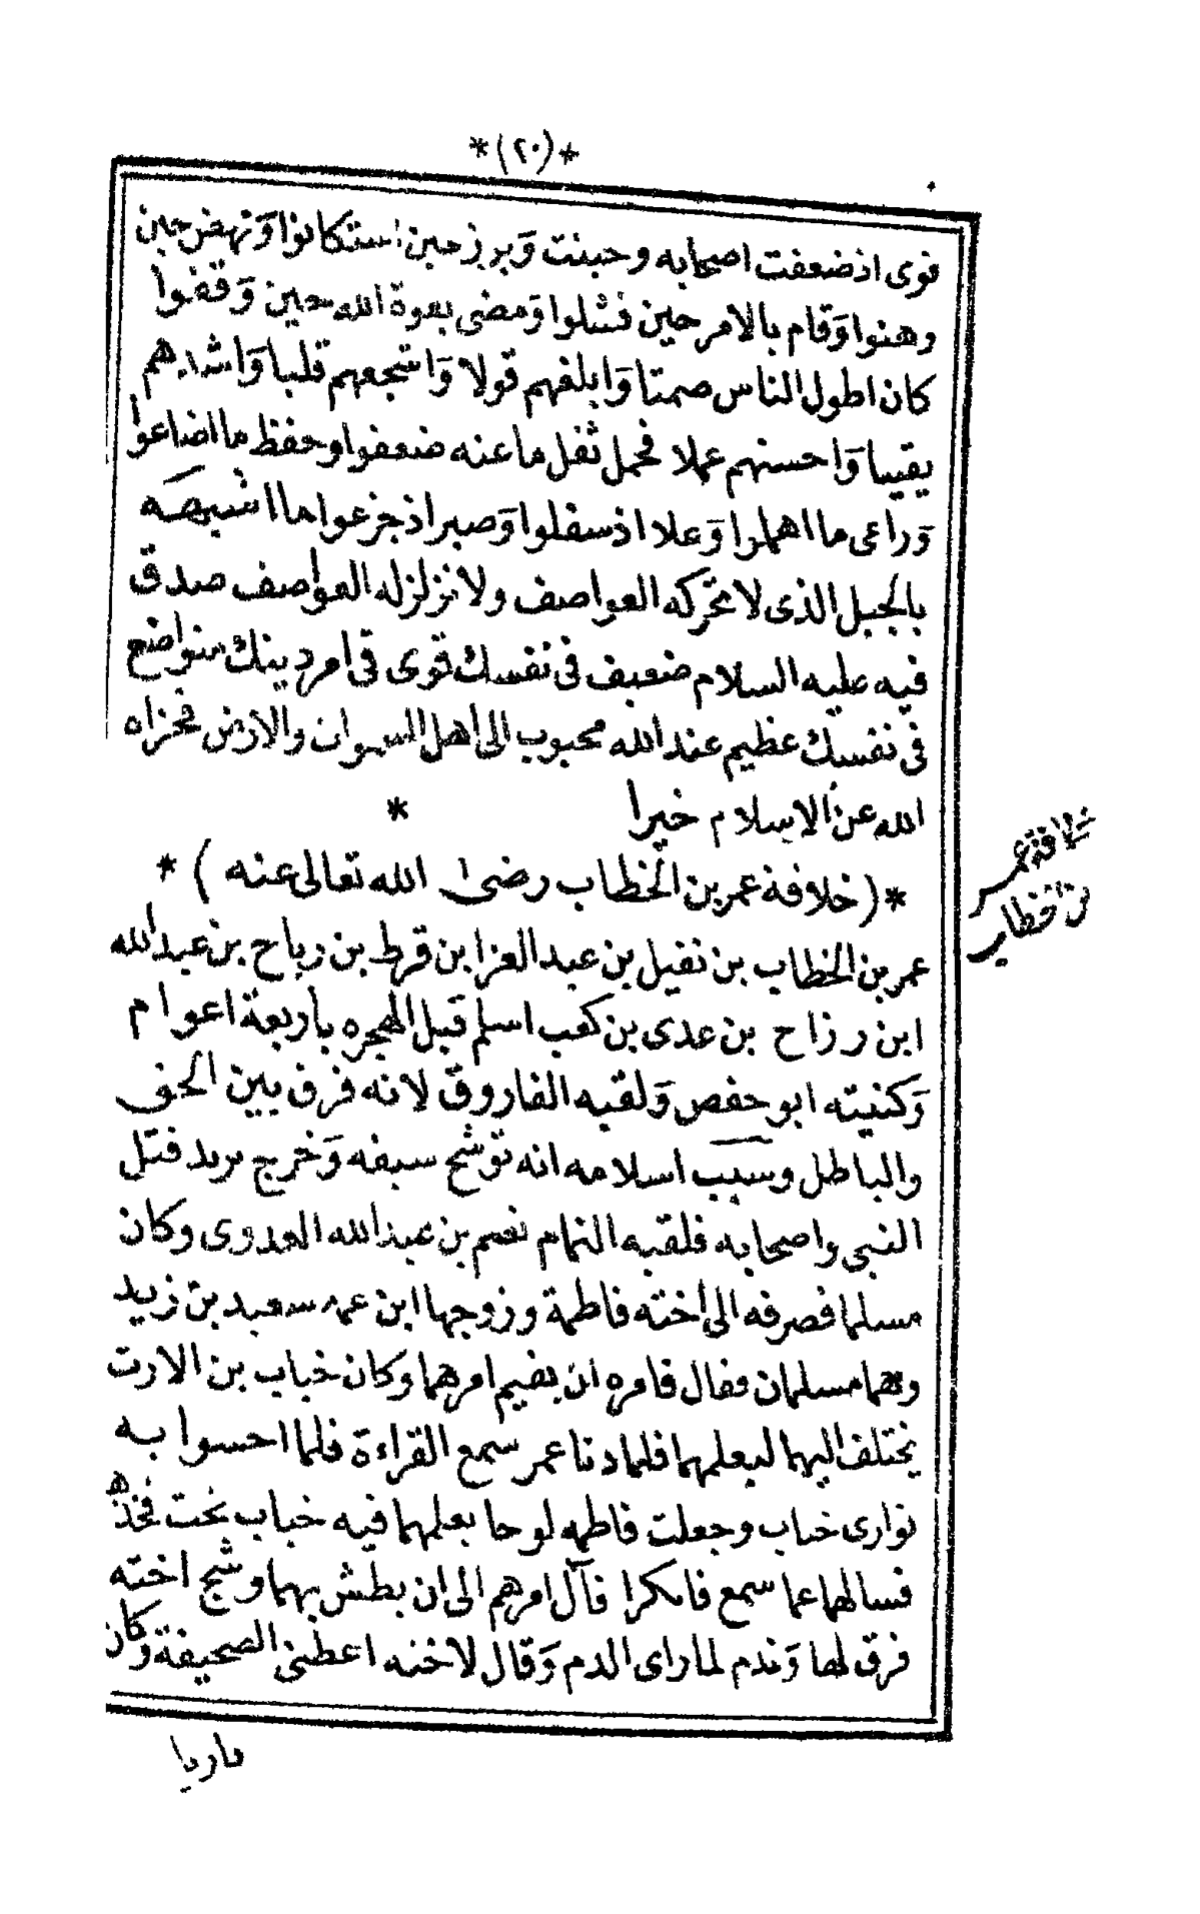 *(٢٠)*
قوى اذ ضعفت اصحابه وجبنت وَبرز حين استكانوا وَنهض حين
وهنوا وَقام بالامر حين فشلوا وَمضى بقوة الله حين وَقفوا
كان اطول الناس صمتا وَابلغهم قولا وَاشجعهم قلبا وَاشدهم
يقينا وَاحسنهم عملا فحمل ثقل ما عنه ضعفوا وحفظ ما اضاعوا
وَراعى ما اهملوا وَعلا اذ سفلوا وَصبر اذ جزعوا ما اشبهه
بالجبل الذى لا تحركه العواصف ولا تزلزله العواصف صدق
فيه عليه السلام ضعيف فى نفسك قوى فى امر دينك متواضع
فى نفسك عظيم عند الله محبوب الى اهل السموات والارض فجزاه
الله عن الاسلام خيرا *
*(خلافة عمر بن الخطاب رضى الله تعالى عنه)*
خلافة عمر
بن الخطاب
عمر بن الخطاب بن نفيل بن عبد العزا بن قرط بن رياح بن عبد الله
ابن رزاح بن عدى بن كعب اسلم قبل الهجره بأربعة اعوام
وَكنيته ابو حفص وَلقبه الفاروق لانه فرق بين الحق
والباطل وسبب اسلامه انه توشح سيفه وَخرج يريد قتل
النبى واصحابه فلقيه النمام نعيم بن عبد الله العدوى وكان
مسلما فصرفه الى اخته فاطمة وزوجها ابن عمه سعيد بن زيد
وهما مسلمان فقال فامره ان يقيم امرهما وكان خباب بن الارت
يختلف اليهما ليعلمهما فلما دنا عمر سمع القراءة فلما احسوا به
توارى خباب وجعلت فاطمه لوحا يعلمهما فيه خباب تحت فخذها
فسالهما عما سمع فانكرا فآل امرهم الى ان بطش بهما وشج اخته
فرق لها وَندم لما راى الدم وَقال لاخته اعطنى الصحيفة وكان